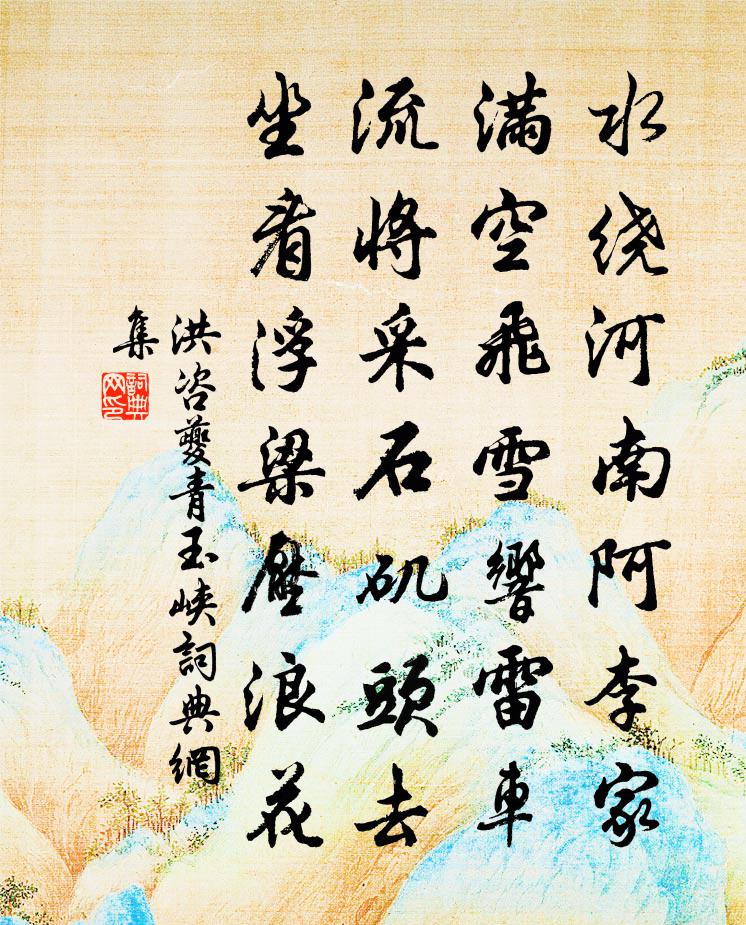 水绕河南阿李家
满空飛雪響雷車
流将采石矶頭去
坐看浮梁壓浪花
洪咨夔青玉峽詞典網
集
詞典
网印